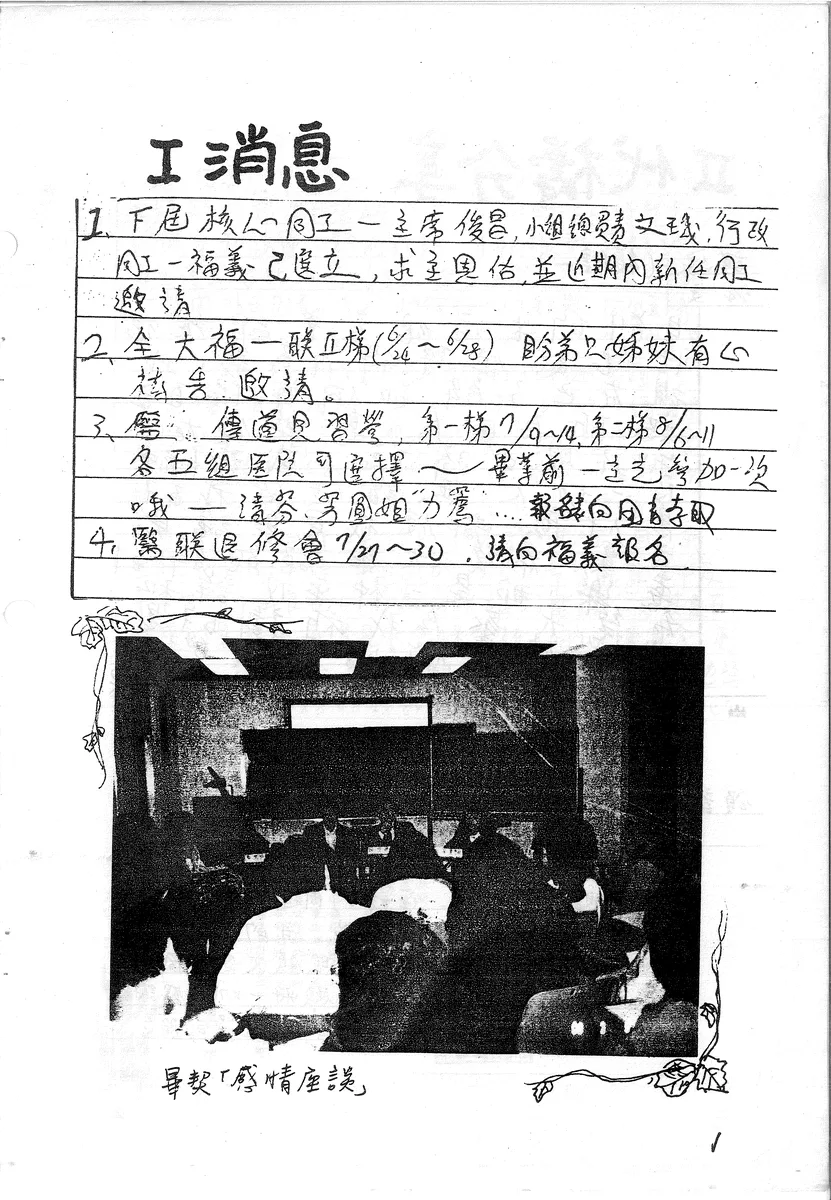 I 消息
1、下屆核心同工—主席俊昌,小組總負責文璣,行政
同工—福義已選立,求主恩佑,並近期內新任同工
邀請
2、全大福—联II梯(6/24～6/28) 盼弟兄姊妹有心
禱告.邀請。
3、醫 傳道見習營,第一梯7/9～14,第二梯8/6～11
各五組医院可選擇～畢業前一定先參加一次
哦——請芬、芳圓姐"力薦...報錶向团 索取
4、醫联退修會7/27～30.請向福義報名.
畢契「感情座談」
1